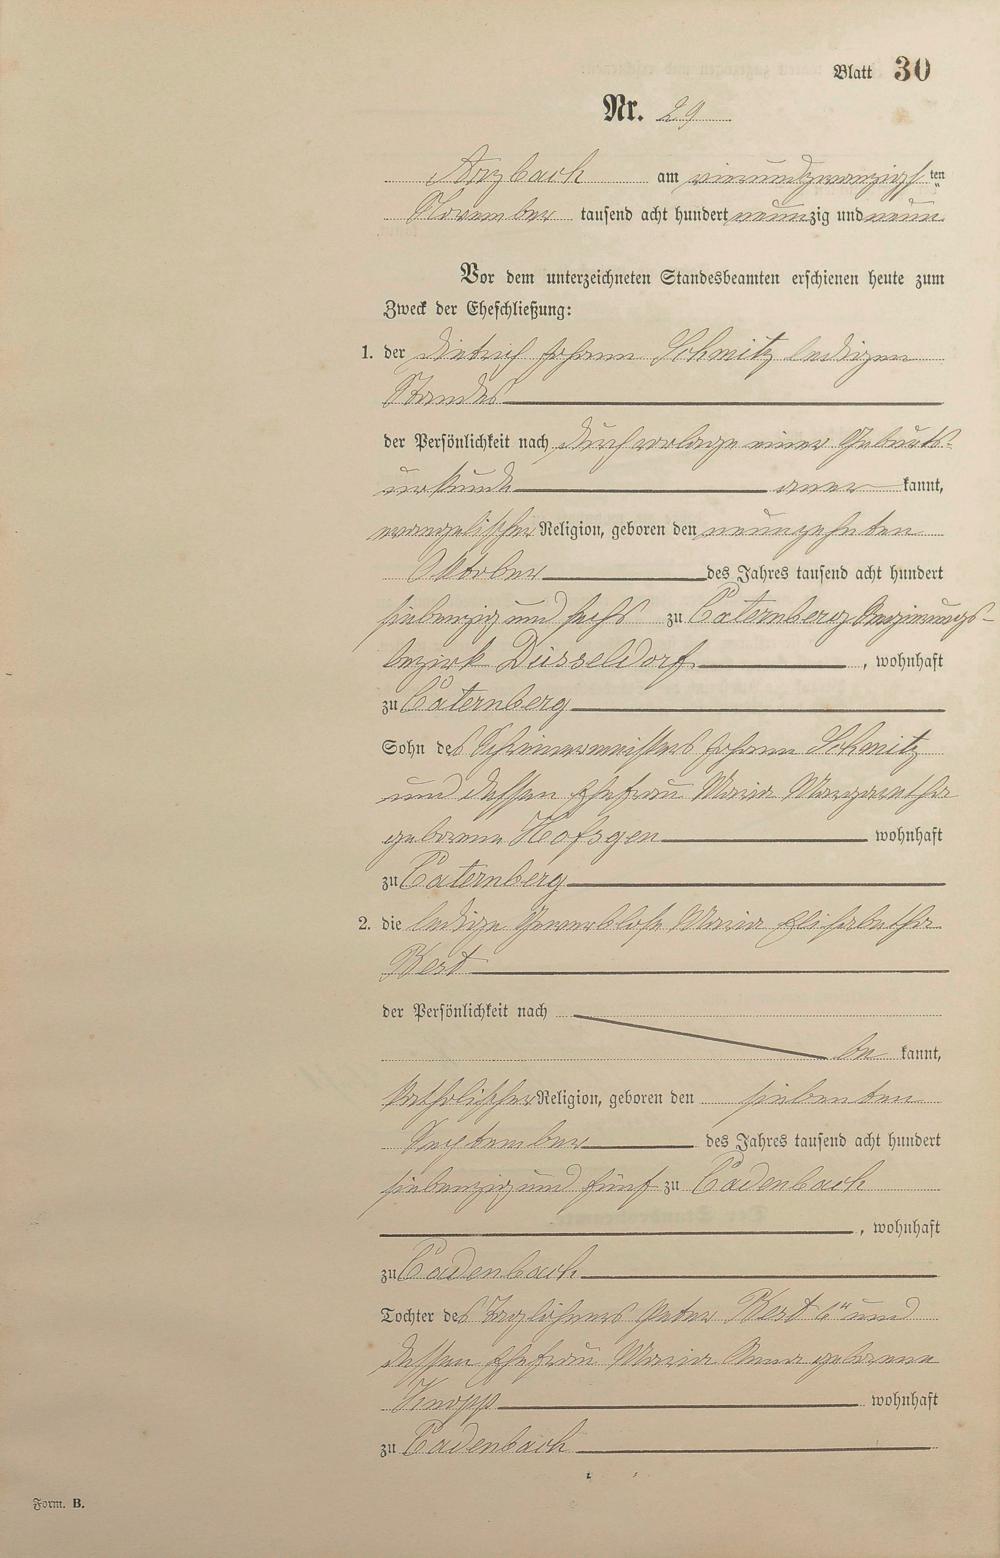 Blatt 30
Nr. 29
Arzbach am vierundzwanzigsten
November tausend acht hundert neunzig und neun
Vor dem unterzeichneten Standesbeamten erschienen heute zum
Zweck der Eheschließung:
1. der Dietrich Johann Schmitz ledigen
Standes
der Persönlichkeit nach durch vorlage einer Geburts-
urkunde aner kannt,
evangelischer Religion, geboren den neunzehnten
Oktober des Jahres tausend acht hundert
siebenzig und sechs zu Caternberg Regierungs-
bezirk Düsseldorf, wohnhaft
zu Caternberg
Sohn des Schreinermeisters Johann Schmitz
und dessen Ehefrau Maria Margaretha
geborene Hofsgen wohnhaft
zu Caternberg
2. die ledige Gewerblose Maria Elisabetha
Kest
der Persönlichkeit nach
be kannt,
katholischer Religion, geboren den siebenten
September des Jahres tausend acht hundert
siebenzig und fünf zu Cadenbach
, wohnhaft
zu Cadenbach
Tochter des Taglöhners Peter Kest 6" und
dessen Ehefrau Maria Anna geborene
Knopp wohnhaft
zu Cadenbach
Form. B.